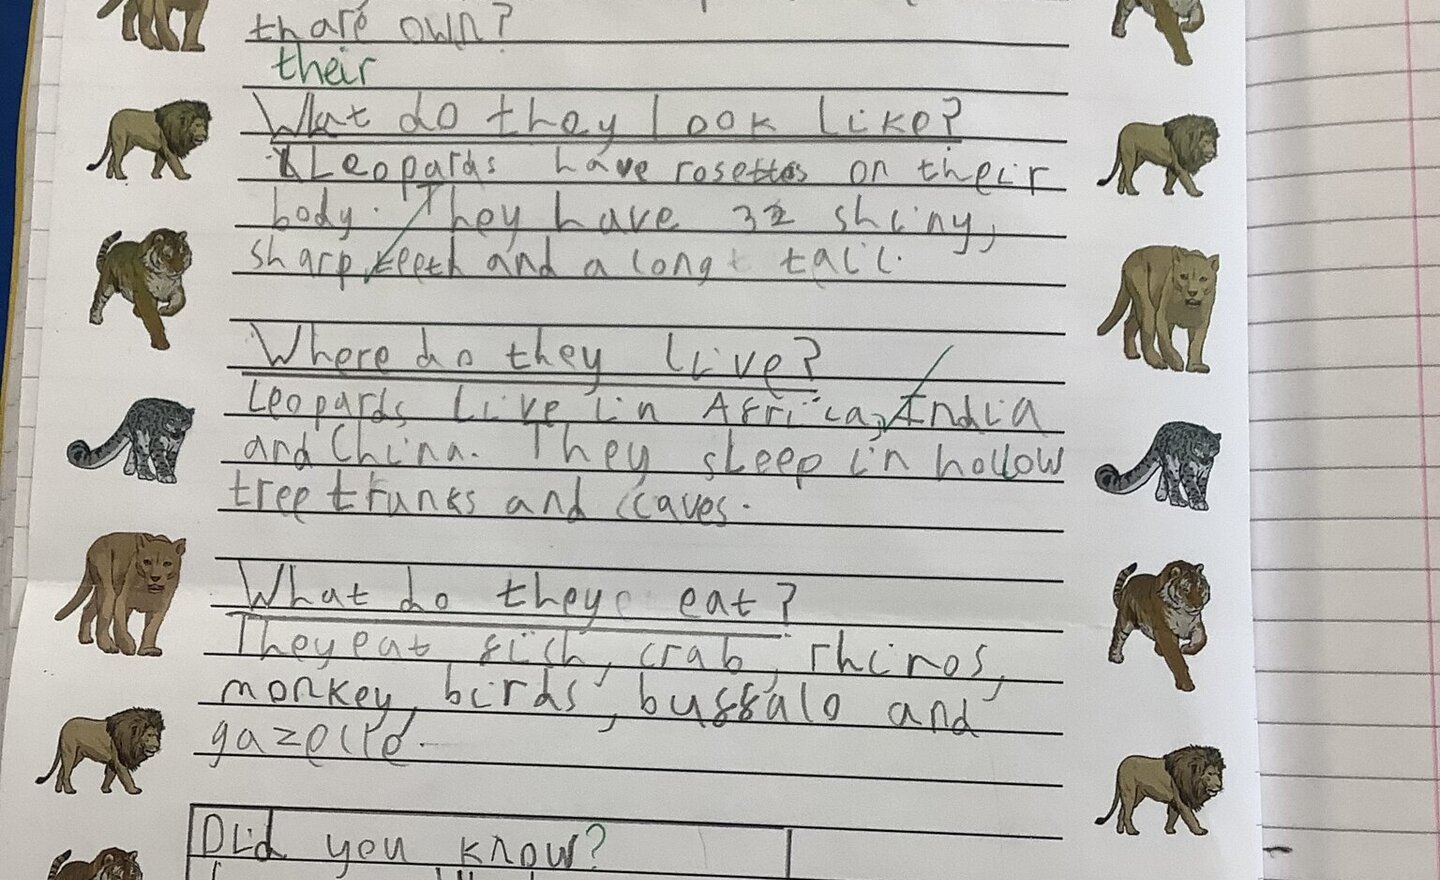 thare own?
their
What do they look like?
Leopards have rosettes on their
body. They have 32 shiny,
sharp teeth and a long tail.
Where do they live?
Leopards live in Africa, India
and China. They sleep in hollow
tree trunks and caves.
What do they eat?
They eat fish, crab, rhinos,
monkey, birds, buffalo and
gazelle.
Did you know?